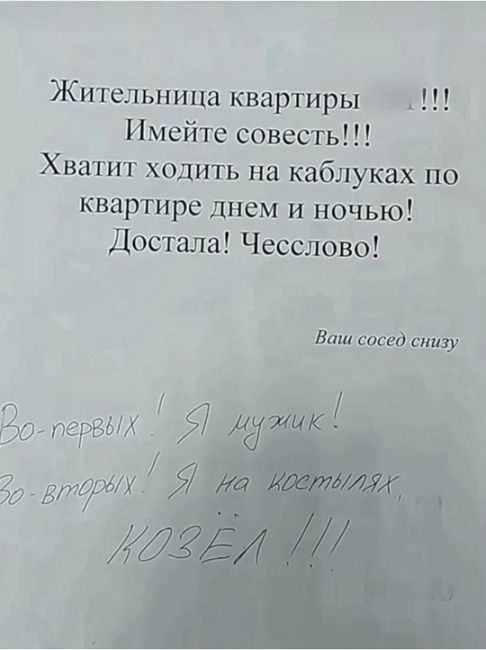 Жительница квартиры !!!
Имейте совесть!!!
Хватит ходить на каблуках по
квартире днем и ночью!
Достала! Чесслово!
Ваш сосед снизу
Во-первых! Я мужик!
Во-вторых! Я на костылях,
КОЗЁЛ!!!